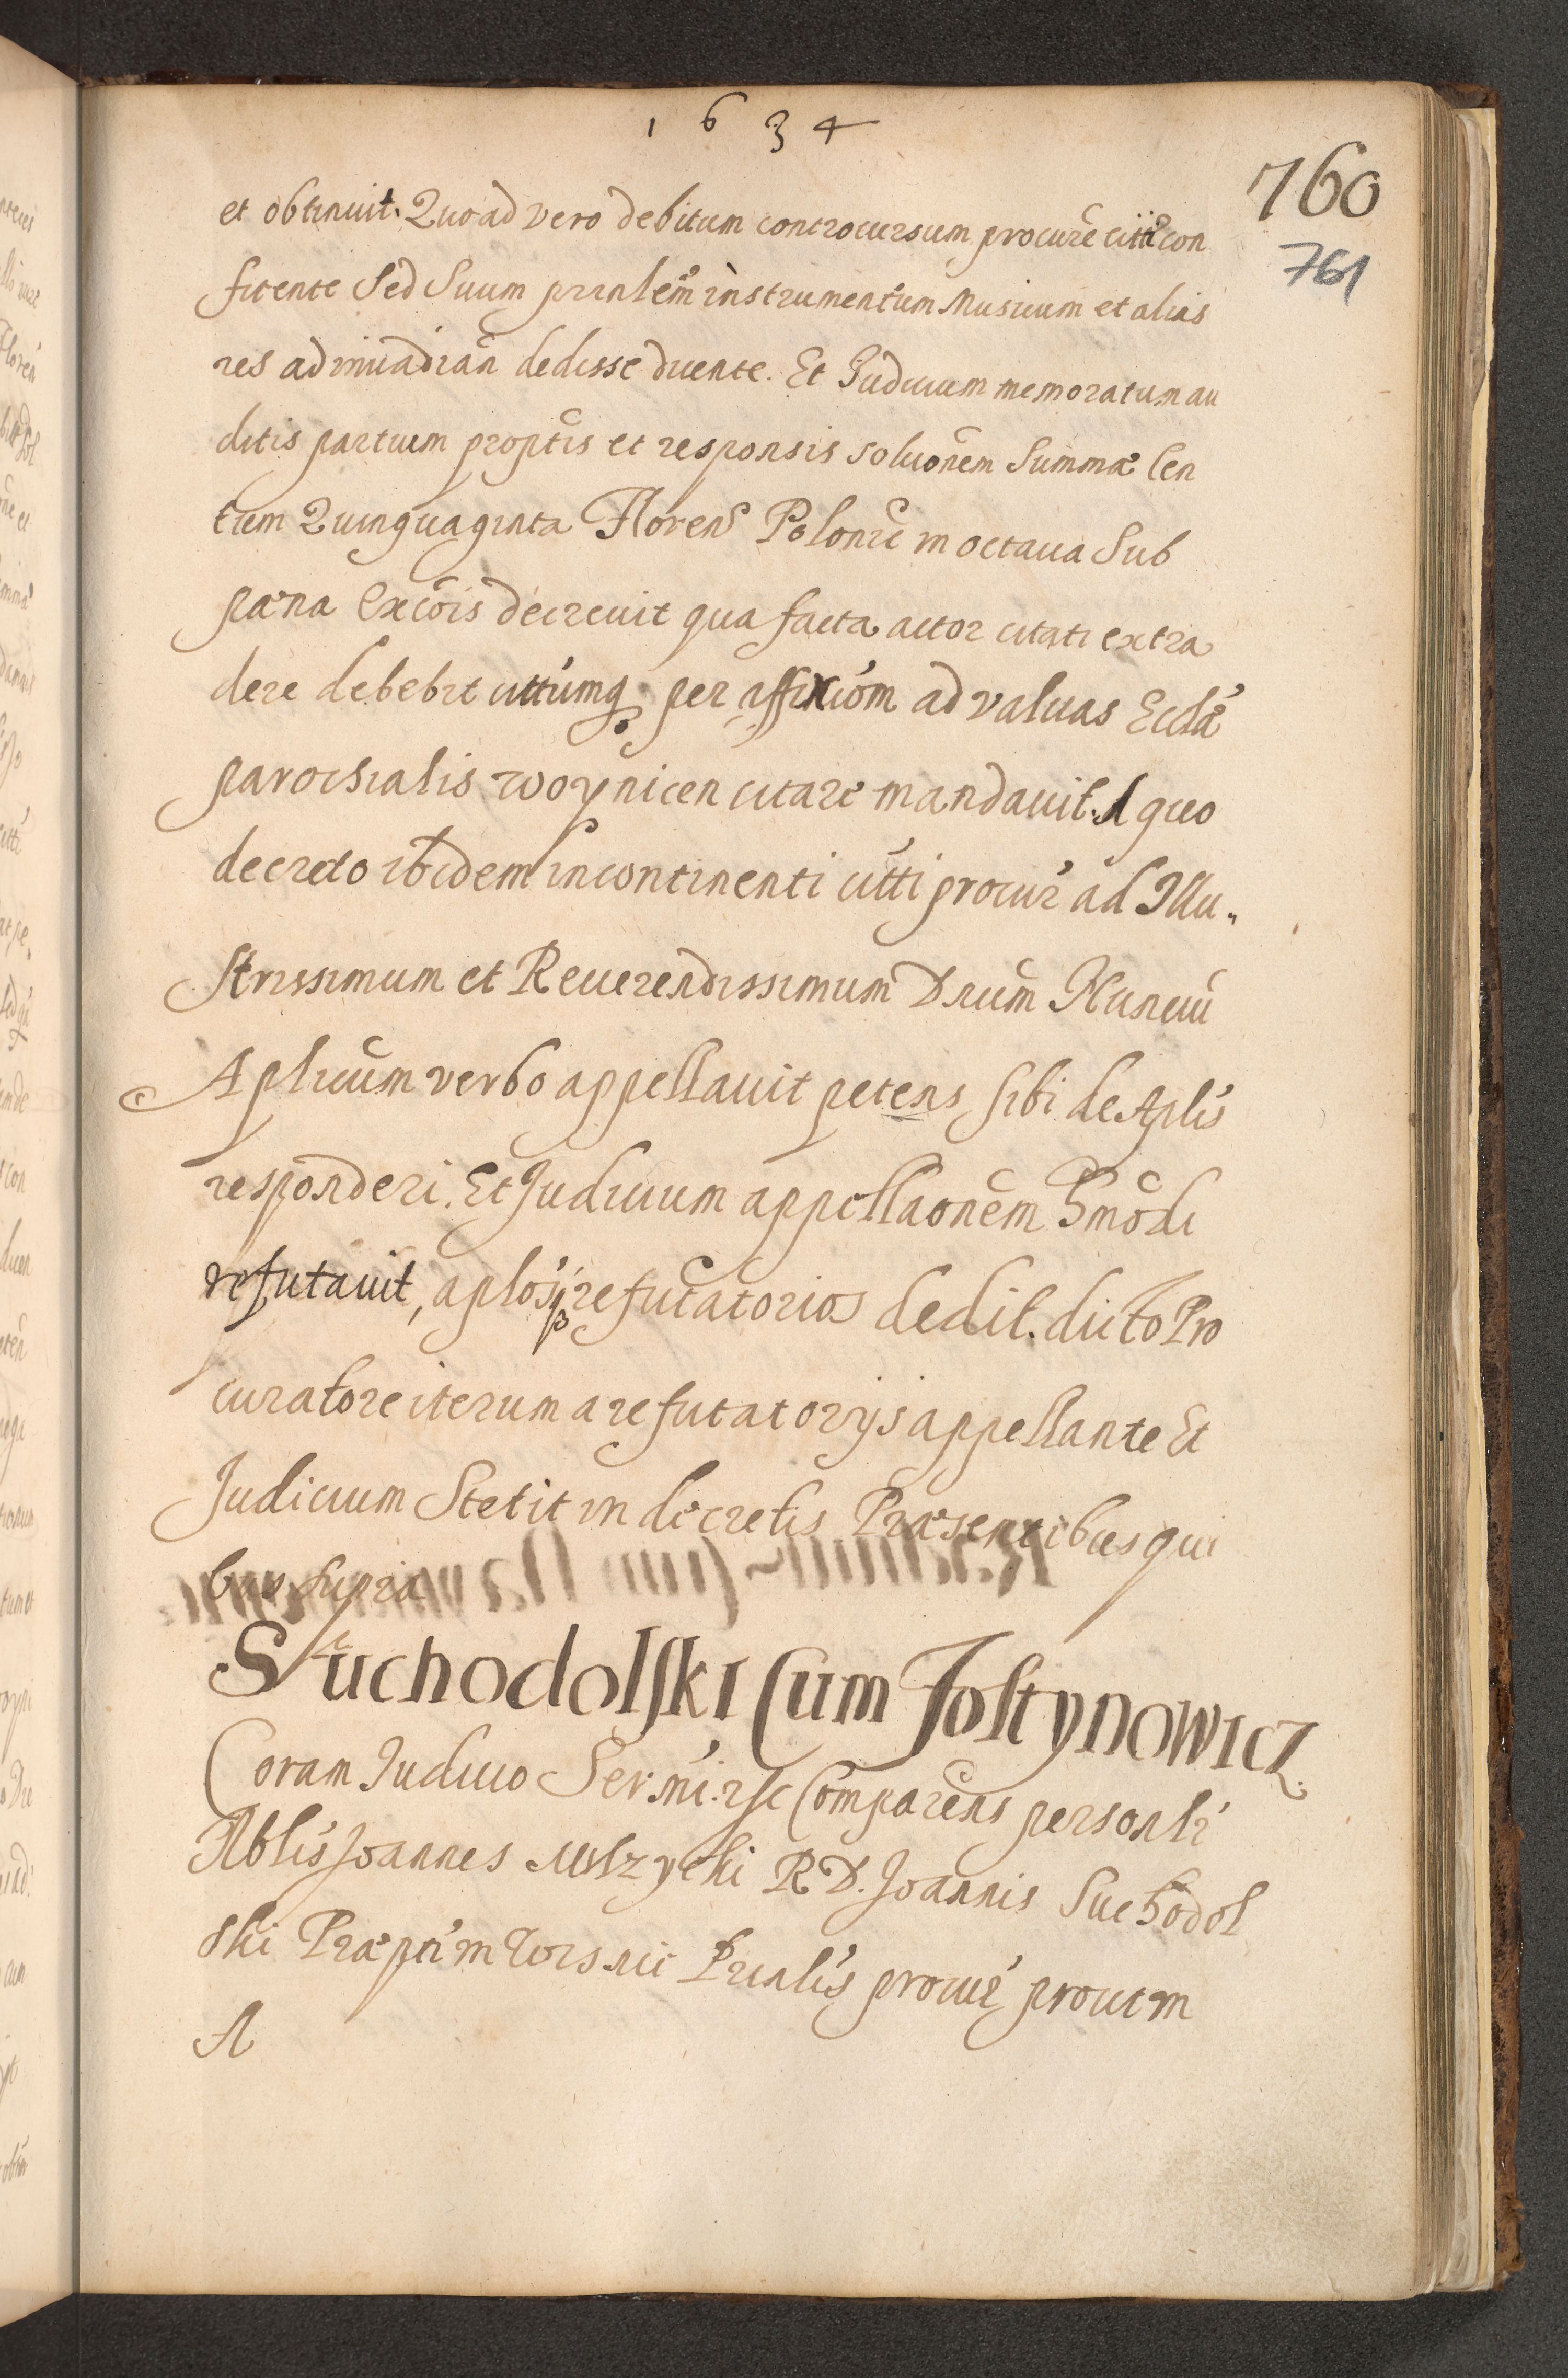 1634
760
761
et obtinuit. Quoad vero debitum controcursum procure citti con
fitente Sed Suum prinlem instrumentum Musicum et alias
res ad inuadian dedisse dicente. Et Judicium memoratum au
ditis partium proptis et responsis soluonem Summæ Cen
tum Quinquaginta Floren Polonic in octaua Sub
pæna Excois decreuit qua facta actor citati extra
dere debebit citumq per affixiom ad valuas Ecclæ
parochialis woynicen citare mandauit. A quo
decreto ibidem incontinenti citti procur ad Illu„
Strissimum et Reuerendissimum Dnum Nunciu
Aplicum verbo appellauit petens sibi de Aplis
responderi. Et Judicium appellaonem hmodi
refutauit, aplosq refutatorios dedit. dicto Pro
curatore iterum a refutatorijs appellante Et
Judicium Stetit in decretis Præsentibus qui
bus supra
Suchodolski Cum Joltynowicz.
Coram Judicio Ser.mi. rsc Comparens personlr
Nblis Joannes Mslzycki R D. Joannis Suchodol
ski Præpti in Prinlis procur prout in
A